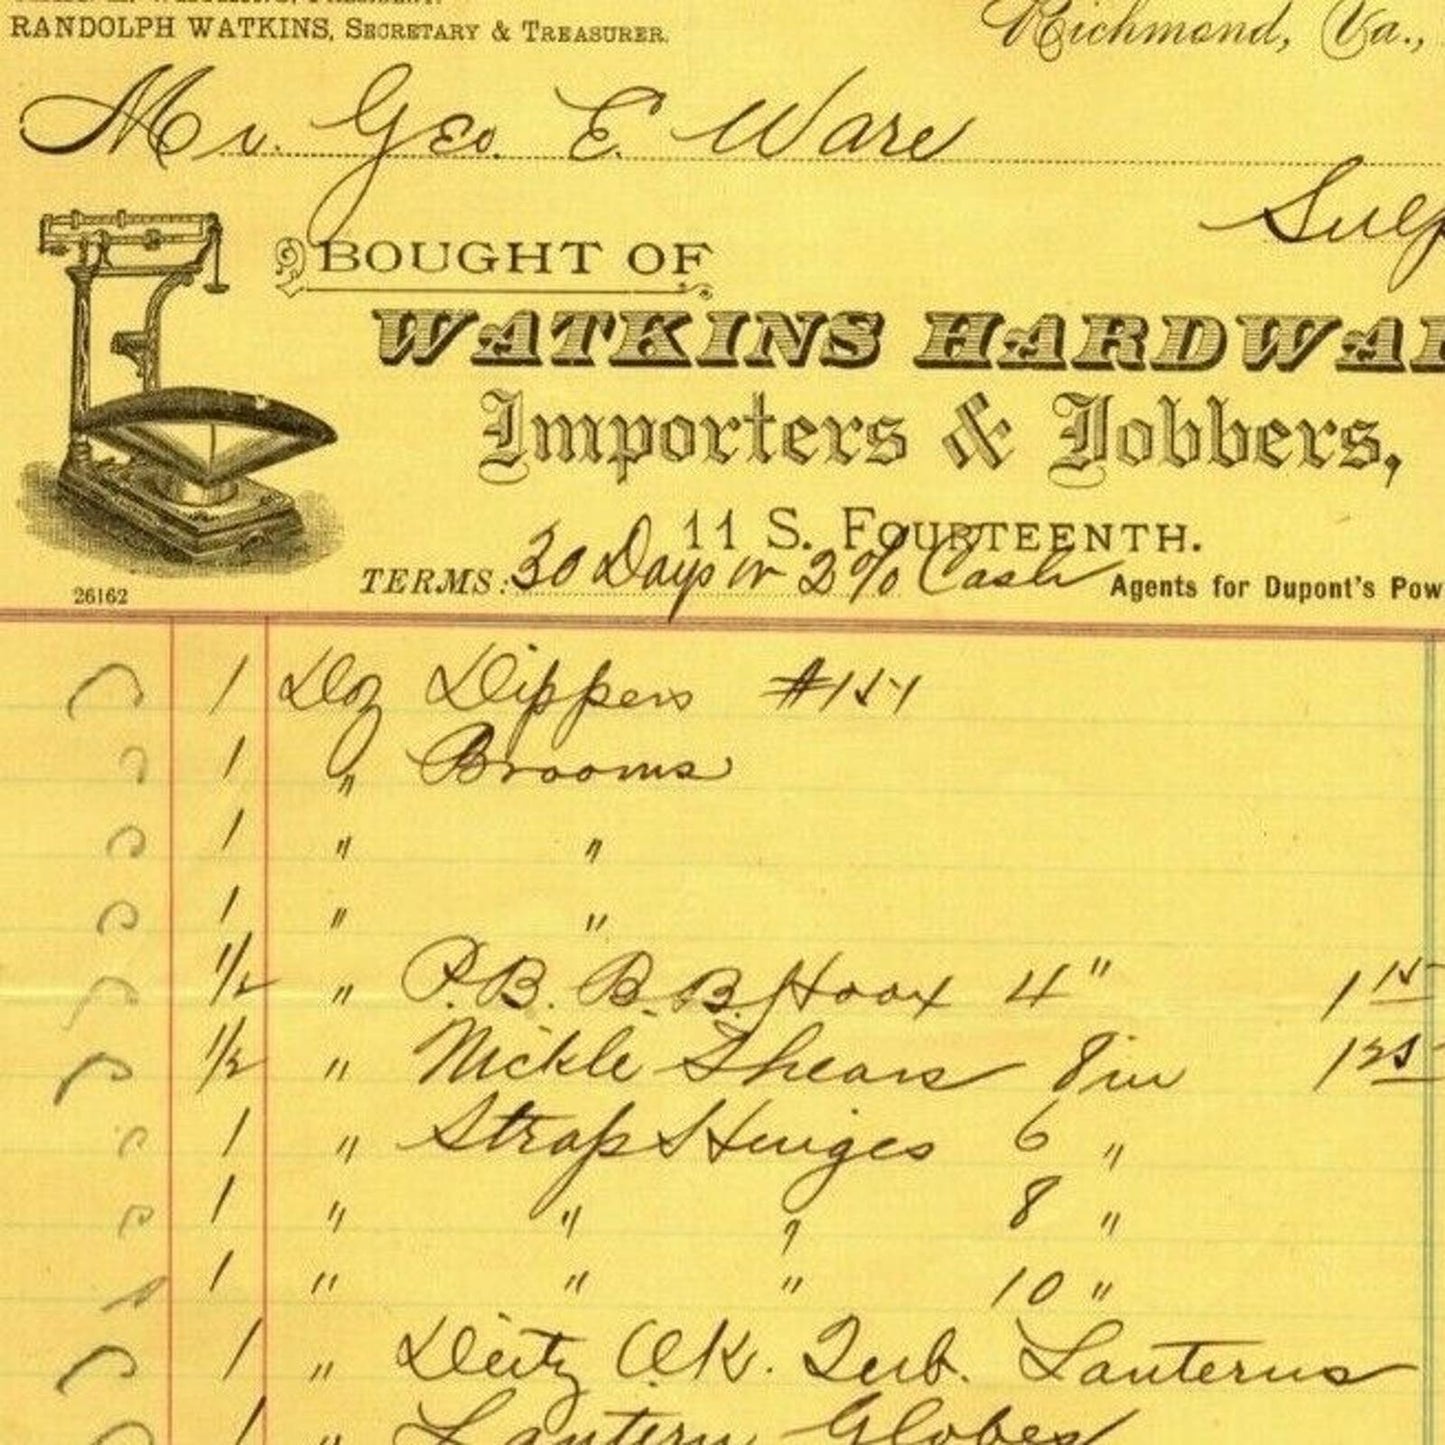 RANDOLPH WATKINS, SECRETARY & TREASURER.
Richmond, Va.,
Mr. Geo. E. Ware
BOUGHT OF
WATKINS HARDWA
Importers & Jobbers,
11 S. FOURTEENTH.
TERMS: 30 Days or 2% Cash Agents for Dupont's Pow
26162
1 Doz Dippers
1 " Brooms
1 " "
1 " "
1/2 " P.B. B.B. Hoox 4" 1 15
1/2 " Nickle Shears 8 in 1 25
1 " Strap Hinges 6 "
1 " " " 8 "
1 " " " 10 "
1 " Deitz O.K. Tub. Lanterns
1 " Lantern Globes